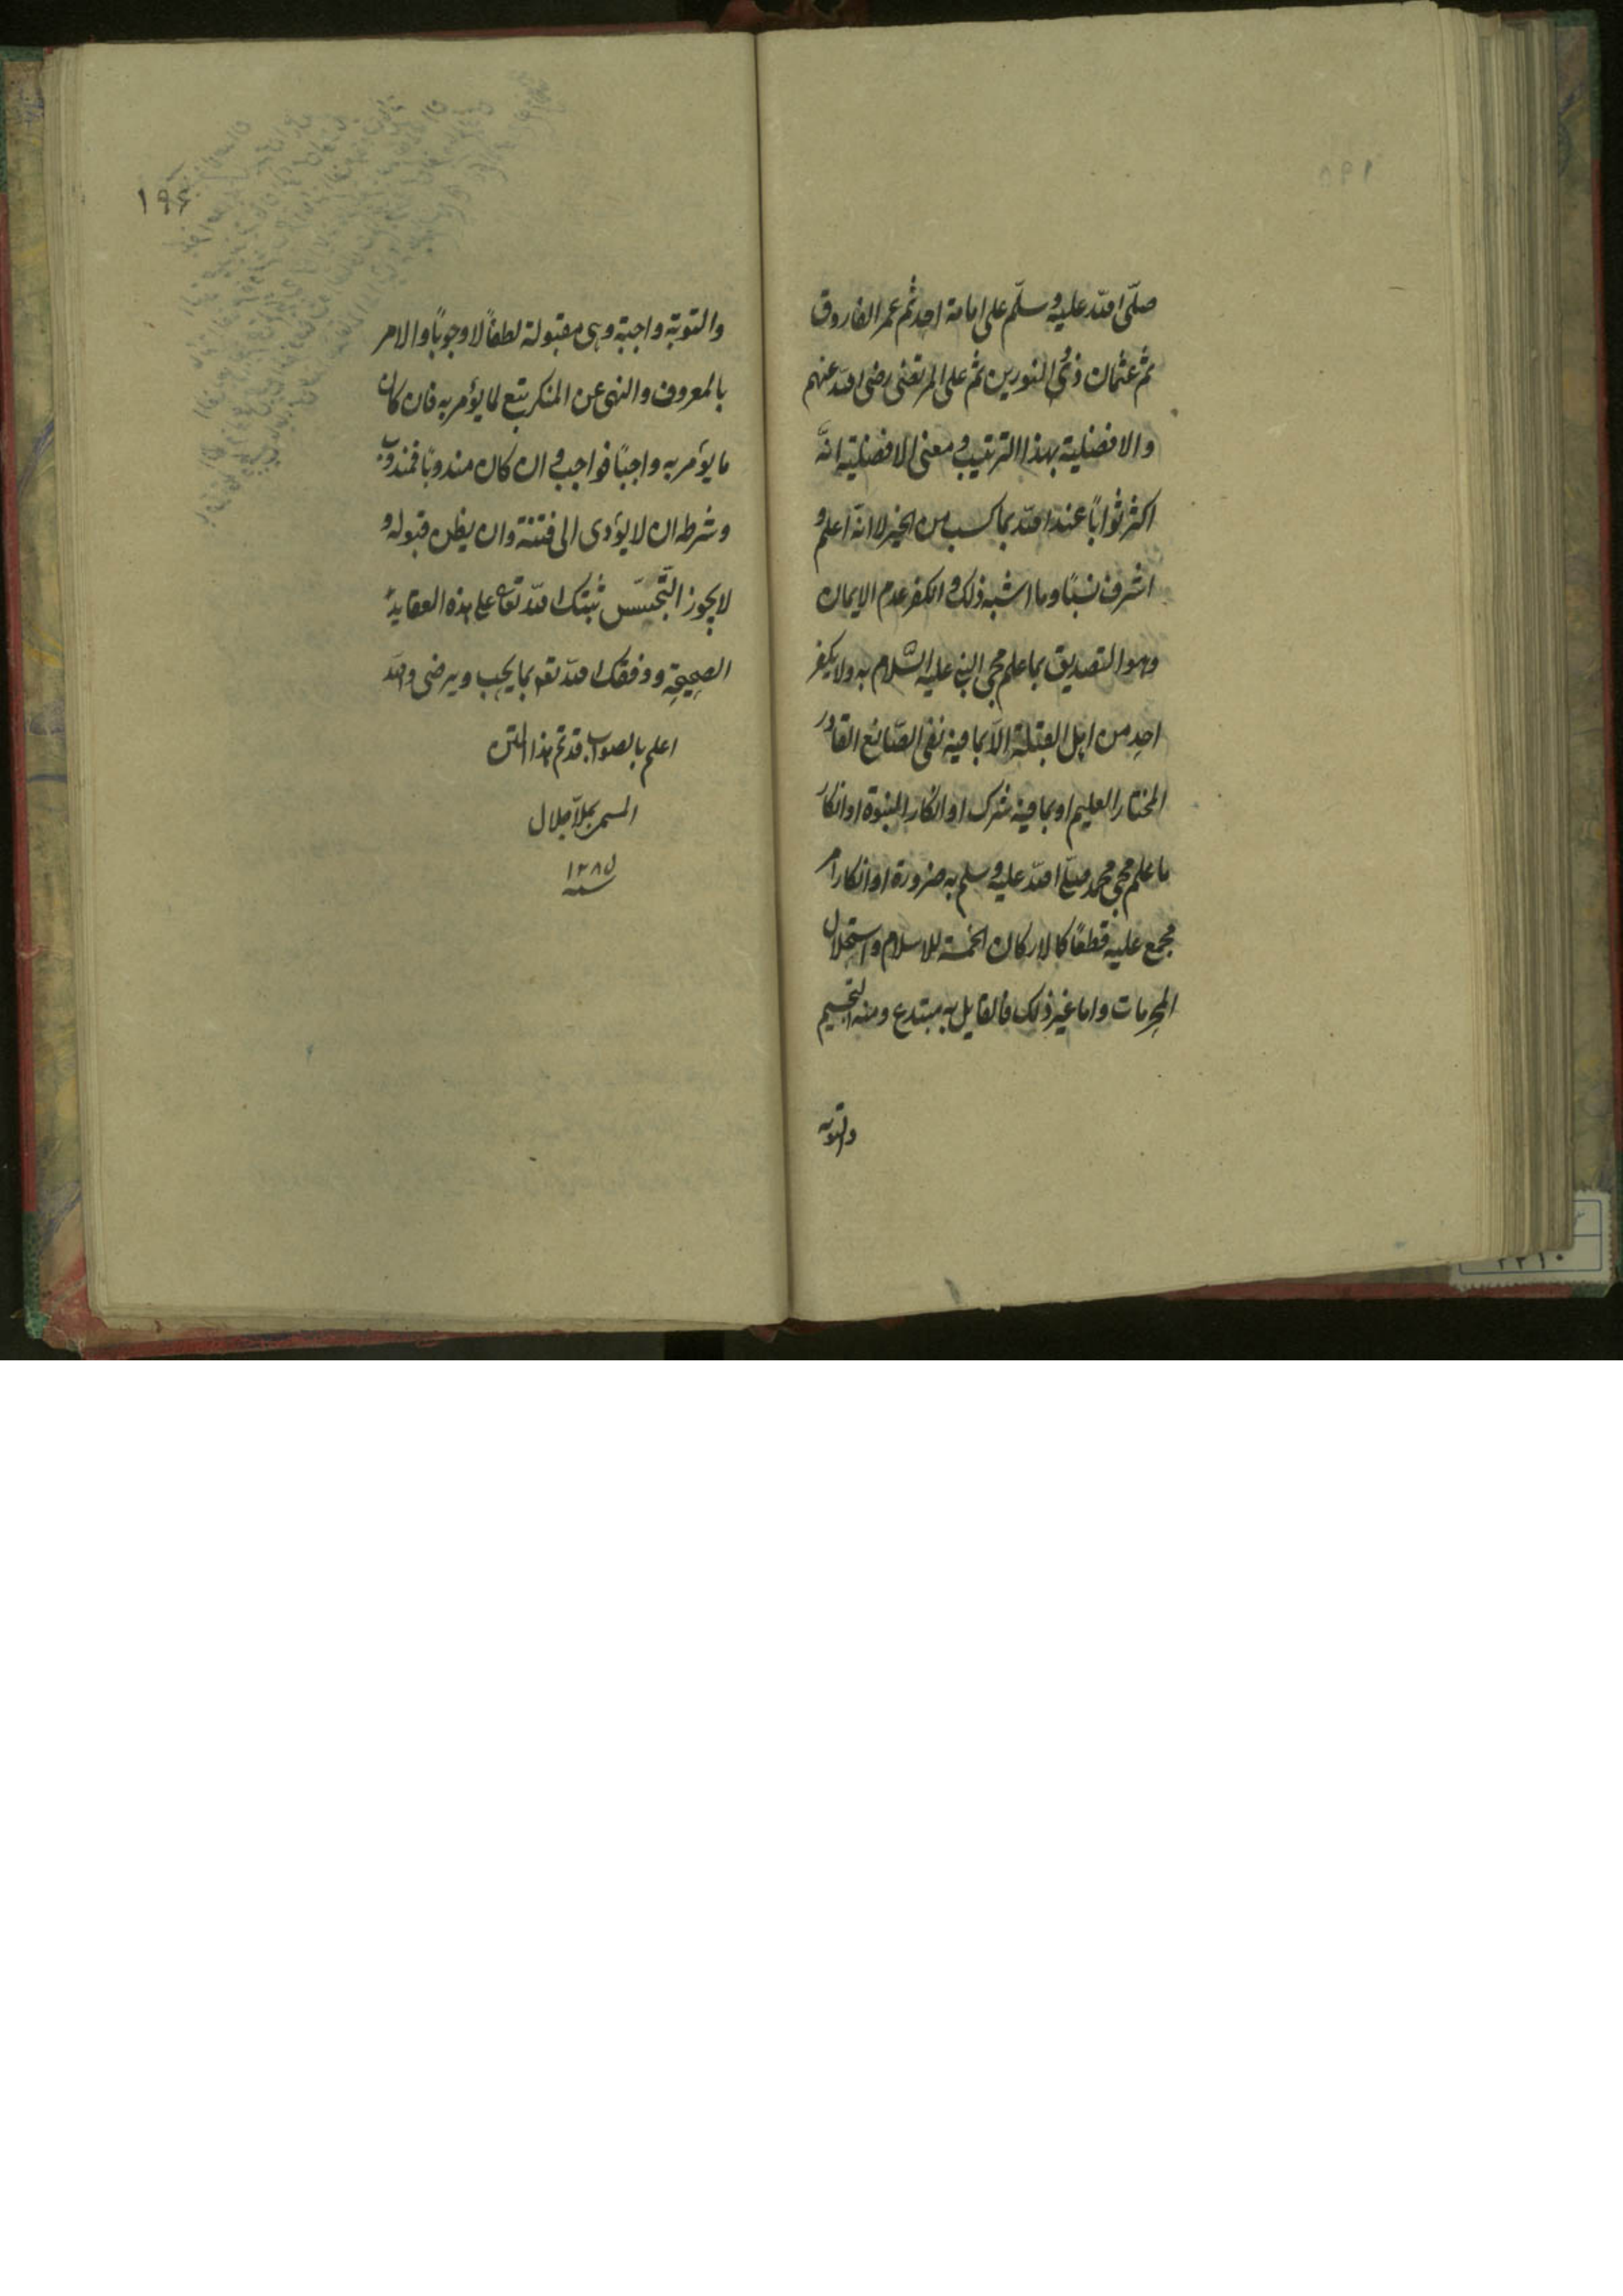 صلّى الله عليه وسلّم على امامة احد ثم عمر الفاروق
ثم عثمان ذى النورين ثم على المرتضى رضى الله عنهم
والافضلية بهذا الترتيب ومعنى الافضلية انّه
اكثر ثواباً عند الله بما كسب من الخير لا انه اعلم و
اشرف نسبًا وما اشبه ذلك والكفر عدم الايمان
وهو التصديق بما علم مجى النبى عليه السّلام به ولا يكفر
احد من اهل القبلة الّا بما فيه نفى الصّانع القادر
المختار العليم او بما فيه شرك او انكار النبوة او انكار
ما علم مجى محمد صلى الله عليه وسلم به ضرورة او انكار امر
مجمع عليه قطعًا كالاركان الخمسة للاسلام واستحلال
المحرمات واما غير ذلك فالقايل به مبتدع ومنه التجسيم
والتوبه
١٩٤
والتوبة واجبة وهى مقبولة لطفاً لا وجوبًا والامر
بالمعروف والنهى عن المنكر تبع لما يؤمر به فان كان
ما يؤمر به واجبًا فواجب وان كان مندوبًا فمندوب
وشرطه ان لا يؤدى الى فتنة وان يظن قبوله و
لا يجوز التّجسّس ثبتك الله تعالى على هذه العقايد
الصحيحة ووفقك الله تعم بما يحب ويرضى والله
اعلم بالصواب قد تم هذا المتن
المسمى بملاّ جلال
١٢٨٥
سنه